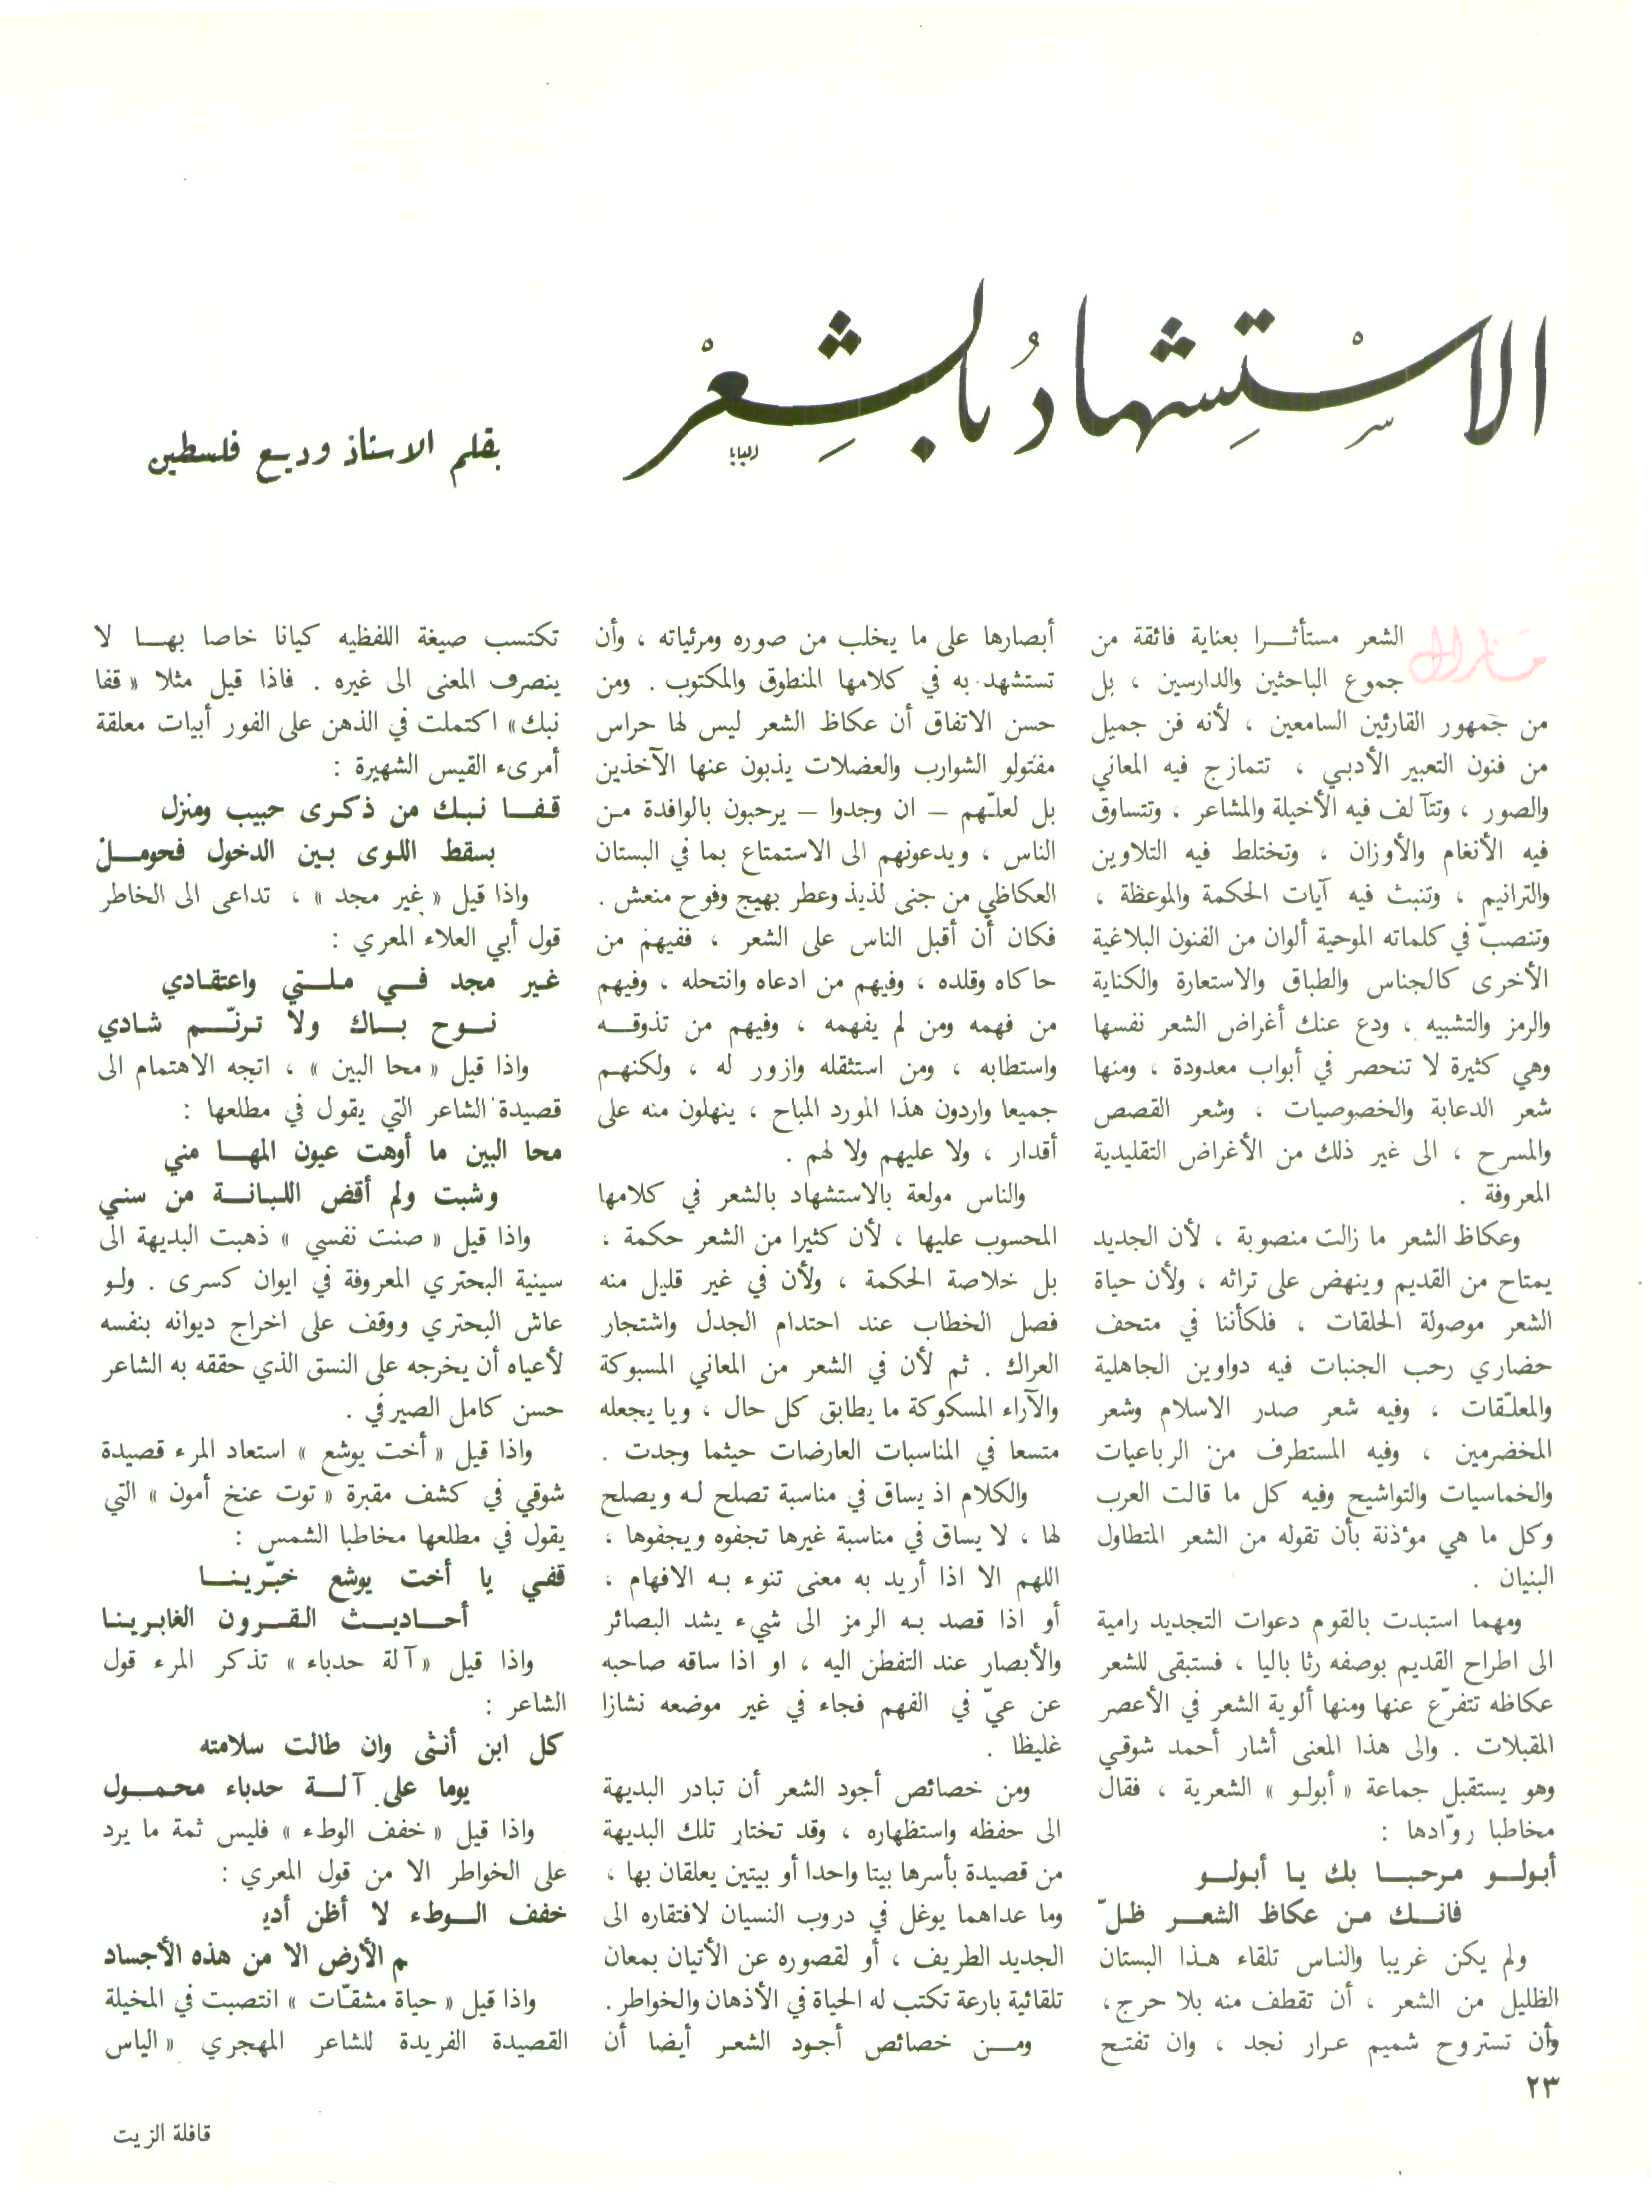 الاسْتِشهادُ بالشِعرْ
البابا
بقلم الاستاذ وديع فلسطين
مازال
الشعر مستأثـرا بعناية فائقة من
جموع الباحثين والدارسين ، بل
من جمهور القارئين السامعين ، لأنه فن جميل
من فنون التعبير الأدبي ، تتمازج فيه المعاني
والصور ، وتتآلف فيه الأخيلة والمشاعر ، وتتساوق
فيه الأنغام والأوزان ، وتختلط فيه التلاوين
والترانيم ، وتنبث فيه آيات الحكمة والموعظة ،
وتنصبّ في كلماته الموحية ألوان من الفنون البلاغية
الأخرى كالجناس والطباق والاستعارة والكناية
والرمز والتشبيه . ودع عنك أغراض الشعر نفسها
وهي كثيرة لا تنحصر في أبواب معدودة ، ومنها
شعر الدعابة والخصوصيات ، وشعر القصص
والمسرح ، الى غير ذلك من الأغراض التقليدية
المعروفة .
وعكاظ الشعر ما زالت منصوبة ، لأن الجديد
يمتاح من القديم وينهض على تراثه ، ولأن حياة
الشعر موصولة الحلقات ، فلكأننا في متحف
حضاري رحب الجنبات فيه دواوين الجاهلية
والمعلّقات ، وفيه شعر صدر الاسلام وشعر
المخضرمين ، وفيه المستطرف من الرباعيات
والخماسيات والتواشيح وفيه كل ما قالت العرب
وكل ما هي مؤذنة بأن تقوله من الشعر المتطاول
البنيان .
ومهما استبدت بالقوم دعوات التجديد رامية
الى اطراح القديم بوصفه رثا باليا ، فستبقى للشعر
عكاظه تتفرّع عنها ومنها ألوية الشعر في الأعصر
المقبلات . والى هذا المعنى أشار أحمد شوقي
وهو يستقبل جماعة « أبولو » الشعرية ، فقال
مخاطبا روّادها :
أبولـو مرحبـا بك يا أبولـو
فانـك من عكاظ الشعـر ظلّ
ولم يكن غريبا والناس تلقاء هذا البستان
الظليل من الشعر ، أن تقطف منه بلا حرج،
وأن تستروح شميم عرار نجد ، وان تفتح
أبصارها على ما يخلب من صوره ومرئياته ، وأن
تستشهد به في كلامها المنطوق والمكتوب . ومن
حسن الاتفاق أن عكاظ الشعر ليس لها حراس
مفتولو الشوارب والعضلات يذبون عنها الآخذين
بل لعلّهم – ان وجدوا – يرحبون بالوافدة من
الناس ، ويدعونهم الى الاستمتاع بما في البستان
العكاظي من جنى لذيذ وعطر بهيج وفوح منعش .
فكان أن أقبل الناس على الشعر ، ففيهم من
حاكاه وقلده ، وفيهم من ادعاه وانتحله ، وفيهم
من فهمه ومن لم يفهمه ، وفيهم من تذوقـه
واستطابه ، ومن استثقله وازور له ، ولكنهم
جميعا واردون هذا المورد المباح ، ينهلون منه على
أقدار ، ولا عليهم ولا لهم .
والناس مولعة بالاستشهاد بالشعر في كلامها
المحسوب عليها ، لأن كثيرا من الشعر حكمة ،
بل خلاصة الحكمة ، ولأن في غير قليل منه
فصل الخطاب عند احتدام الجدل واشتجار
العراك . ثم لأن في الشعر من المعاني المسبوكة
والآراء المسكوكة ما يطابق كل حال ، وبا يجعله
متسعا في المناسبات العارضات حيثما وجدت .
والكلام اذ يساق في مناسبة تصلح له ويصلح
لها ، لا يساق في مناسبة غيرها تجفوه ويجفوها ،
اللهم الا اذا أريد به معنى تنوء به الافهام ،
أو اذا قصد به الرمز الى شيء يشد البصائر
والأبصار عند التفطن اليه ، او اذا ساقه صاحبه
عن عيّ في الفهم فجاء في غير موضعه نشازا
غليظا .
ومن خصائص أجود الشعر أن تبادر البديهة
الى حفظه واستظهاره ، وقد تختار تلك البديهة
من قصيدة بأسرها بيتا واحدا أو بيتين يعلقان بها ،
وما عداهما يوغل في دروب النسيان لافتقاره الى
الجديد الطريف ، أو لقصوره عن الأتيان بمعان
تلقائية بارعة تكتب له الحياة في الأذهان والخواطر.
ومـن خصائص أجود الشعر أيضا أن
تكتسب صيغة اللفظيه كيانا خاصا بهـا لا
ينصرف المعنى الى غيره . فاذا قيل مثلا « قفا
نبك» اكتملت في الذهن على الفور أبيات معلقة
أمرىء القيس الشهيرة :
قـفـا نبك من ذكرى حبيب ومنزل
بسقط اللوى بين الدخول فحومـلْ
واذا قيل « غير مجد » ، تداعى الى الخاطر
قول أبي العلاء المعري :
غير مجد فـي ملـتي واعتقادي
نـوح بـاك ولا ترنّـم شادي
واذا قيل « محا البين » ، اتجه الاهتمام الى
قصيدة الشاعر التي يقول في مطلعها :
محا البين ما أوهت عيون المهـا مني
وشبت ولم أقض اللبانـة من سني
واذا قيل « صنت نفسي » ذهبت البديهة الى
سينية البحتري المعروفة في ايوان كسرى . ولو
عاش البحتري ووقف على اخراج ديوانه بنفسه
لأعياه أن يخرجه على النسق الذي حققه به الشاعر
حسن كامل الصيرفي .
واذا قيل « أخت يوشع » استعاد المرء قصيدة
شوقي في كشف مقبرة « توت عنخ أمون » التي
يقول في مطلعها مخاطبا الشمس :
قفي يا أخت يوشع خبّرينـا
أحـاديـث القـرون الغابرينا
واذا قيل «آلة حدباء» تذكر المرء قول
الشاعر :
كل ابن أنثى وان طالت سلامته
يوما على آلـة حدباء محمـول
واذا قيل « خفف الوطء » فليس ثمة ما يرد
على الخواطر الا من قول المعري :
خفف الـوطء لا أظن أديـ
م الأرض الا من هذه الأجساد
واذا قيل « حياة مشقّات » انتصبت في المخيلة
القصيدة الفريدة للشاعر المهجري « الياس
٢٣
قافلة الزيت